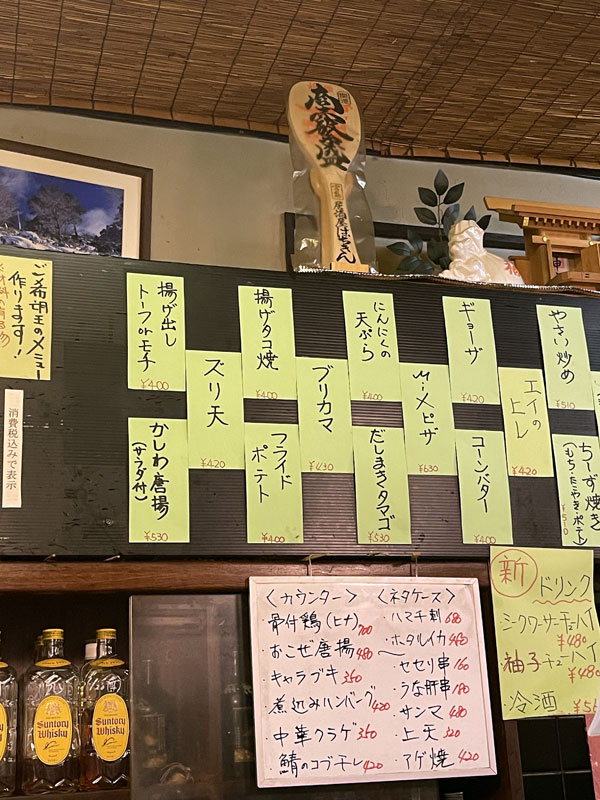 直策盛
居酒屋はちきん
ご希望のメニュー
作ります!
消費税込みで表示
揚げ出し
トーフor モチ
¥400
ズリ天
¥420
かしわ唐揚
(サラダ付)
¥530
揚げタコ焼
¥400
ブリカマ
¥430
フライド
ポテト
¥400
にんにくの
天ぷら
¥400
Mixピザ
¥630
だしまきタマゴ
¥530
ギョーザ
¥420
エイの
ヒレ
¥420
コーンバター
¥400
やさい炒め
¥510
ちーず焼き
(もち・たこやき・ポテト)
¥510
<カウンター>
・骨付鶏(ヒナ)700
・おこぜ唐揚480
・キャラブキ350
・煮込みハンバーグ420
・中華クラゲ350
・鯖のコブ〆420
<ネタケース>
・ハマチ刺680
・ホタルイカ480
・セセリ串160
・うな肝串180
・サンマ480
・上天320
・アゲ焼420
新ドリンク
・シークワーサーチューハイ
¥480
・柚子チューハイ
¥480
・冷酒
SUNTORY
Whisky
SUNTORY
Whisky